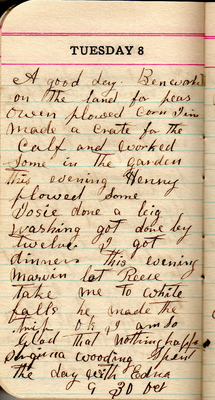 TUESDAY 8
A good day. Ben worked
on the land for peas
Owen plowed corn Jim
made a crate for the
Calf and worked
some in the garden
this evening Henny
plowed some
Josie done a big
washing got done by
twelve. I got
dinners this evening
Marvin let Reece
take me to white
falls he made the
trip ok, I am so
glad that nothing happe
Virginia wooding spent
the day with Edna